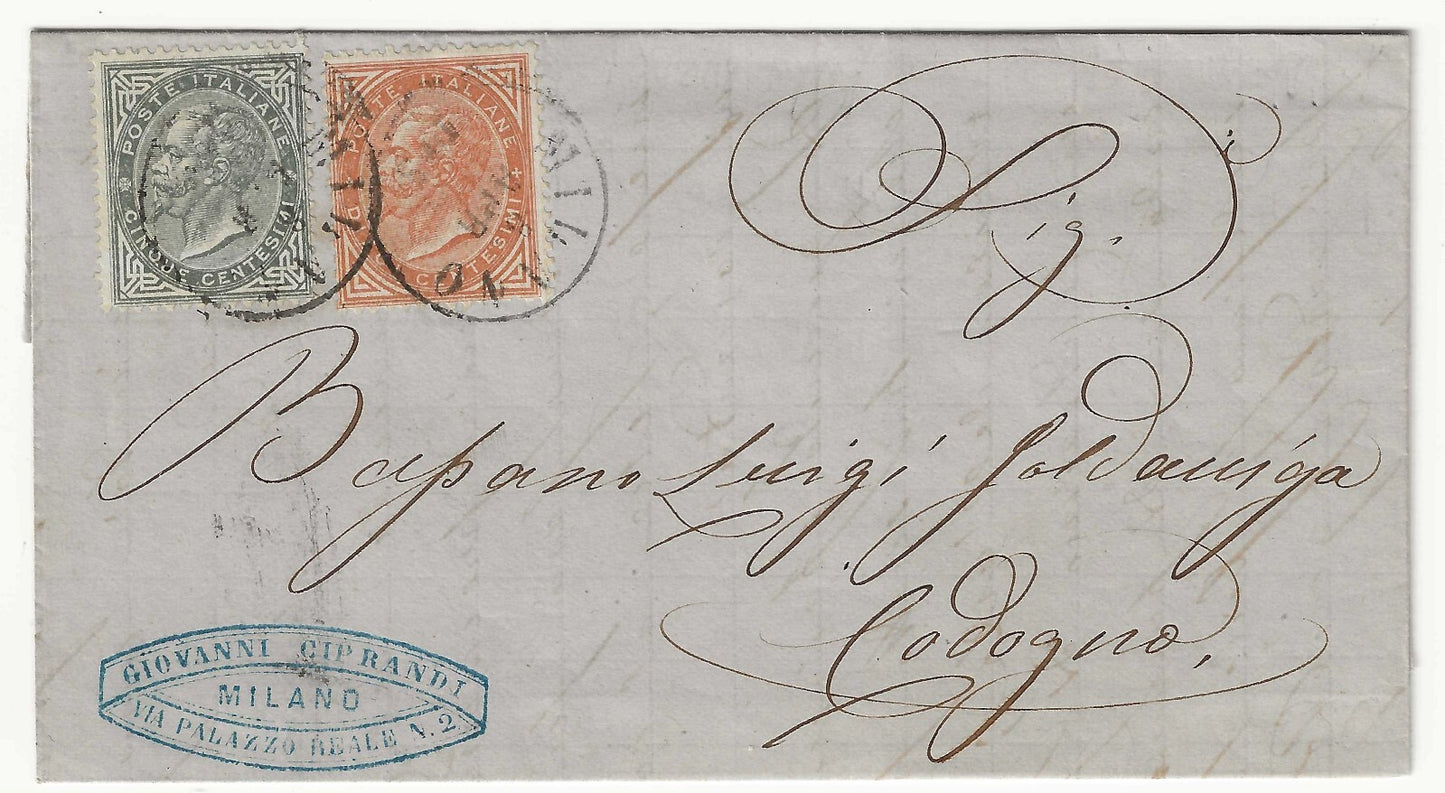 POSTE ITALIANE
CINQUE CENTESIMI
POSTE ITALIANE
CENTESIMI
MILANO
Sig.i
Luigi Goldaniga
Codogno,
GIOVANNI CIPRANDI
MILANO
VIA PALAZZO REALE N. 2